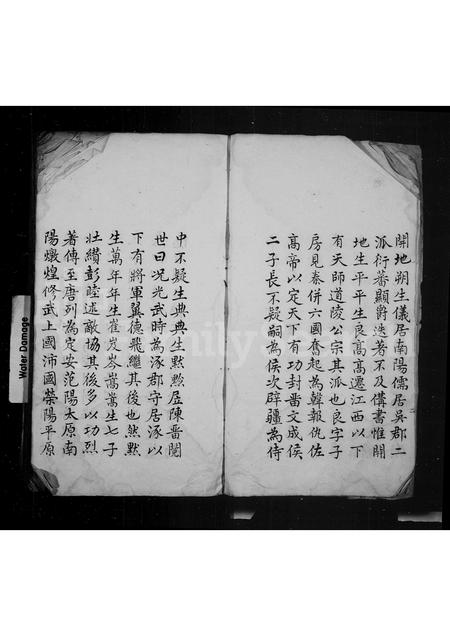 開地朔生儀居南陽儒居吳郡二
派衍蕃顯爵迭著不及備書惟開
地生平平生良高高遷江西以下
有天師道陵公宗其派也良字子
房見秦併六國奮起為韓報仇佐
高帝以定天下有功封啬文成侯
二子長不疑嗣為侯次辟疆為侍
中不疑生典典生默默居陳晋閱
世曰况光武時為涿郡守居涿以
下有將軍翼德飛繼其後也然默
生萬年年生崔岌岑嵩嵩生七子
壯纘彭睦述敵協其後多以功烈
著傳至唐列為定安范陽太原南
陽燉煌修武上國沛國榮陽平原
Water Damage